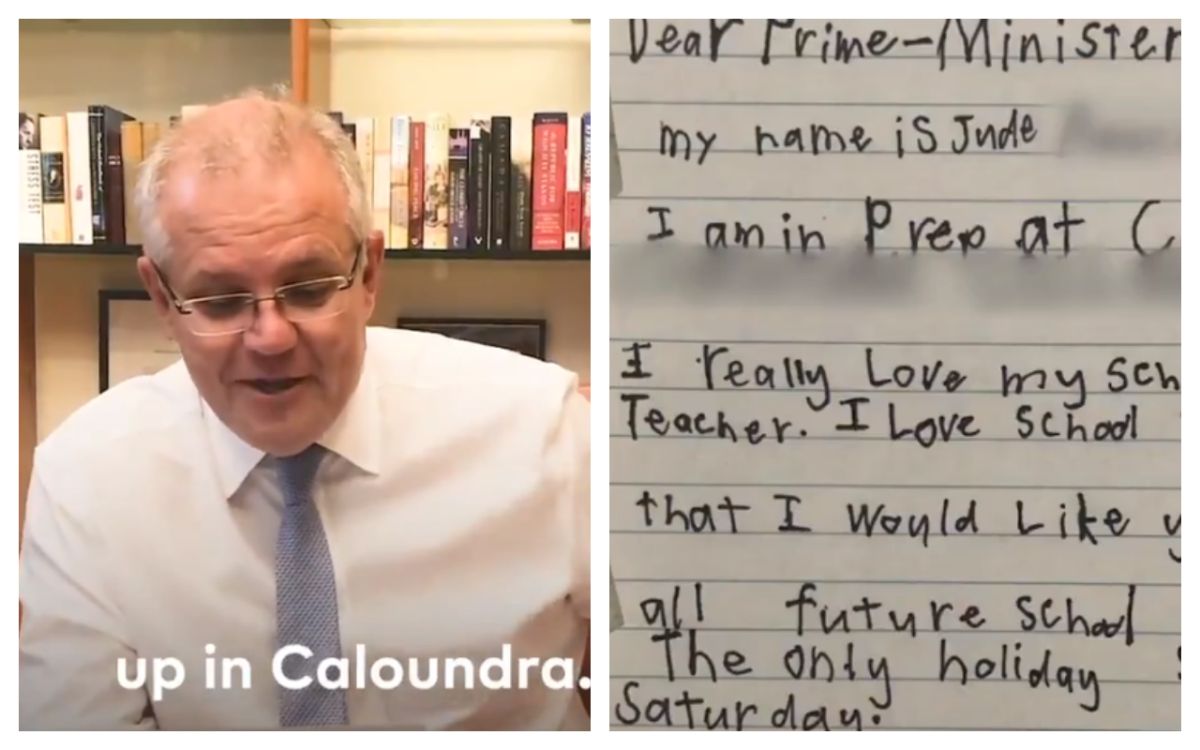 STRESS TEST
up in Caloundra.
Dear Prime-Minister
my name is Jude
I am in Prep at C
I really Love my Sch
Teacher. I Love School
that I would Like y
all future School
The only holiday
Saturday.